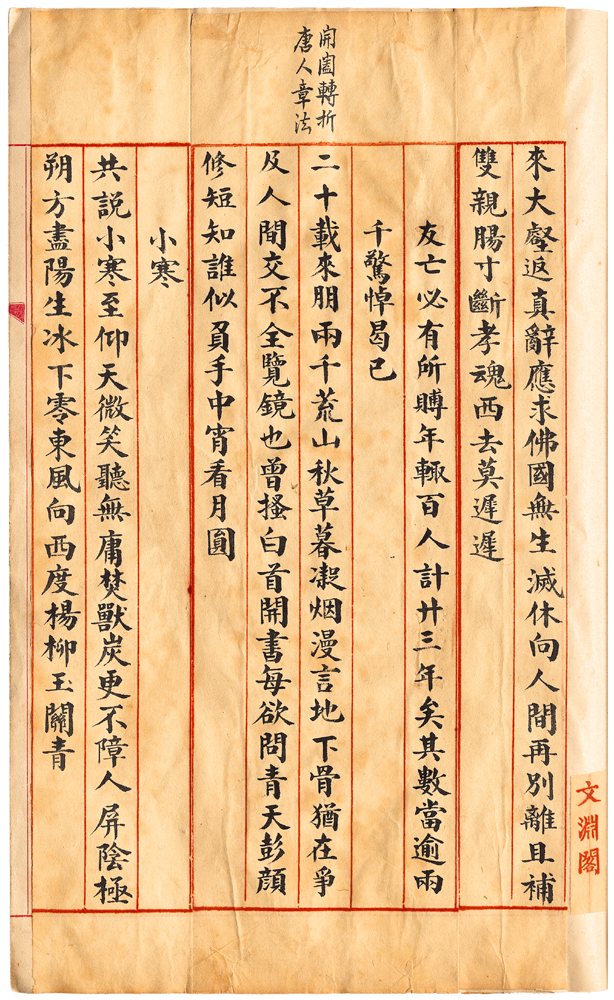 開闔轉折
唐人章法
來大壑返真辭應求佛國無生滅休向人間再別離且補
雙親腸寸斷孝魂西去莫遲遲
友亡必有所賻年輒百人計廿三年矣其數當逾兩
千驚悼曷已
二十載來朋兩千荒山秋草暮凝烟漫言地下骨猶在爭
及人間交不全覽鏡也曾搔白首開書每欲問青天彭顔
修短知誰似負手中宵看月圓
小寒
共説小寒至仰天微笑聽無庸焚獸炭更不障人屏陰極
朔方盡陽生冰下零東風向西度楊柳玉關青
文淵閣